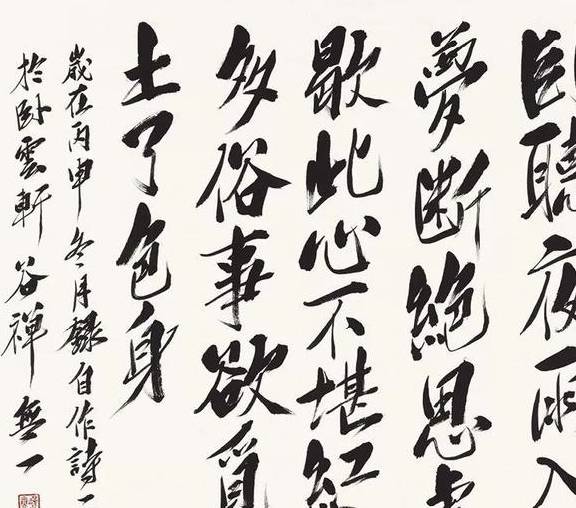 卧聽夜雨入
夢斷絕思慮
歇此心不堪紅
多俗事欲覓
土了色身
歲在丙申冬月錄自作詩一
於卧雲軒谷禪無一